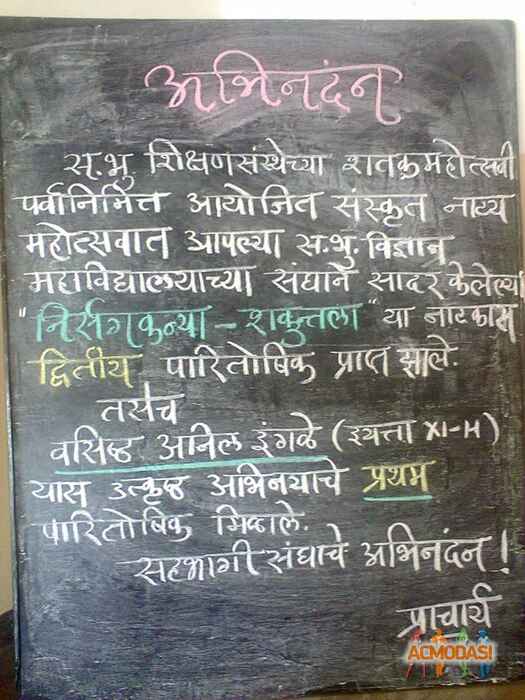 अभिनंदन
स.भु. शिक्षणसंस्थेच्या शतकमहोत्सवी
पर्वानिमित्त आयोजित संस्कृत नाट्य
महोत्सवात आपल्या स.भु. विज्ञान
महाविद्यालयाच्या संघाने सादर केलेल्या
"निर्सगकन्या - शकुन्तला" या नाटकास
द्वितीय पारितोषिक प्राप्त झाले.
तसेच
वसिष्ठ अनिल इंगळे (इयत्ता XI-H)
यास उत्कृष्ठ अभिनयाचे प्रथम
पारितोषिक मिळाले.
सहभागी संघाचे अभिनंदन!
प्राचार्य
ACMODASI